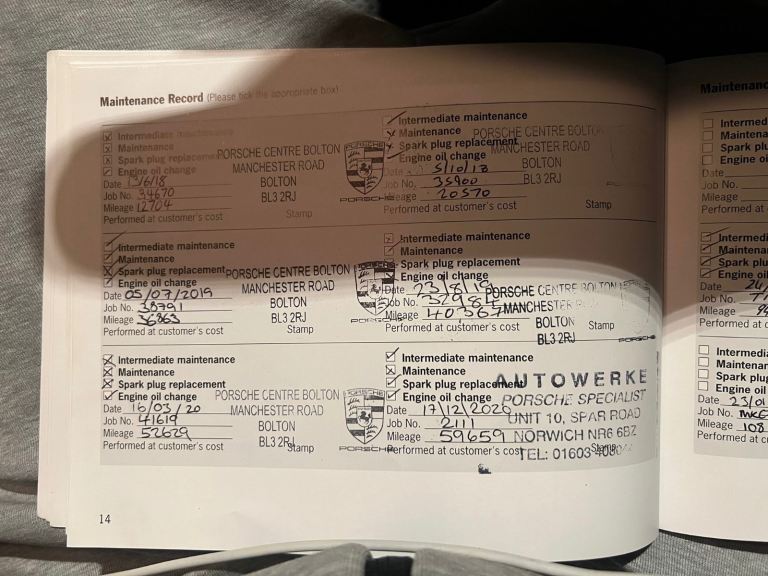 Maintenance Record (Please tick the appropriate box)
Intermediate maintenance
Maintenance
Spark plug replacement
Engine oil change
Date 13/6/18
Job No. 34670
Mileage 12704
Performed at customer's cost
Stamp
PORSCHE CENTRE BOLTON
MANCHESTER ROAD
BOLTON
BL3 2RJ
PORSCHE
Intermediate maintenance
Maintenance
Spark plug replacement
Engine oil change
Date 5/10/18
Job No. 35900
Mileage 20570
Performed at customer's cost
Stamp
PORSCHE CENTRE BOLTON
MANCHESTER ROAD
BOLTON
BL3 2RJ
Intermediate maintenance
Maintenance
Spark plug replacement
Engine oil change
Date 05/07/2019
Job No.
Mileage 36863
Performed at customer's cost
Stamp
PORSCHE CENTRE BOLTON
MANCHESTER ROAD
BOLTON
BL3 2RJ
Intermediate maintenance
Maintenance
Spark plug replacement
Engine oil change
Date 23/8/19
Job No.
Mileage 40367
Performed at customer's cost
Stamp
PORSCHE CENTRE BOLTON
MANCHESTER
BOLTON
BL3 2RJ
PORSCHE
Intermediate maintenance
Maintenance
Spark plug replacement
Engine oil change
Date 16/03/20
Job No. 41619
Mileage 52629
Performed at customer's cost
Stamp
PORSCHE CENTRE BOLTON
MANCHESTER ROAD
BOLTON
BL3 2RJ
PORSCHE
Intermediate maintenance
Maintenance
Spark plug replacement
Engine oil change
Date 17/12/2020
Job No. 2111
Mileage 59659
Performed at customer's cost
Stamp
AUTOWERKE
PORSCHE SPECIALIST
UNIT 10, SPAR ROAD
NORWICH NR6 6BZ
TEL: 01603
14
Maintenance
Intermed
Maintena
Spark plu
Engine oi
Date
Job No.
Mileage
Performed at c
Intermedi
Maintena
Spark plu
Engine oi
Date
Job No.
Mileage
Performed at c
Intermedi
Maintenan
Spark plug
Engine oil
Date 23/01
Job No.
Mileage 108
Performed at cu